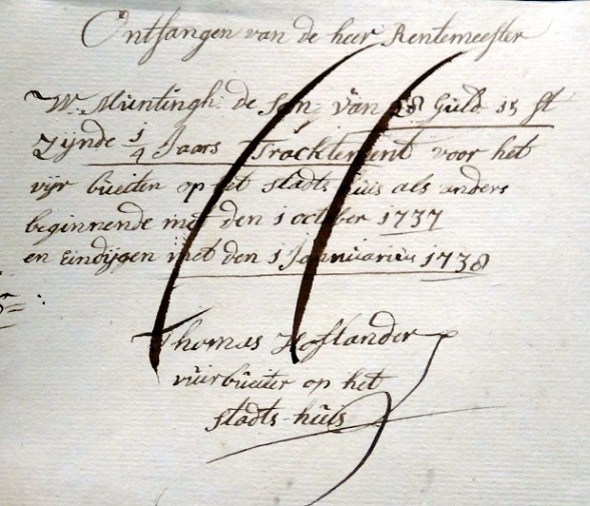 Ontfangen van de heer Rentemeester
W. Muntingh de Som van 18 Guld 15 st
Zijnde 1/4 Jaars Tracktement voor het
vijr bueiten op het stadts huis als anders
beginnende met den 1 october 1737
en Eindijgen met den 1 Jannuarius 1738
Thomas Hoflander
vuirbueiter op het
stadts-huis